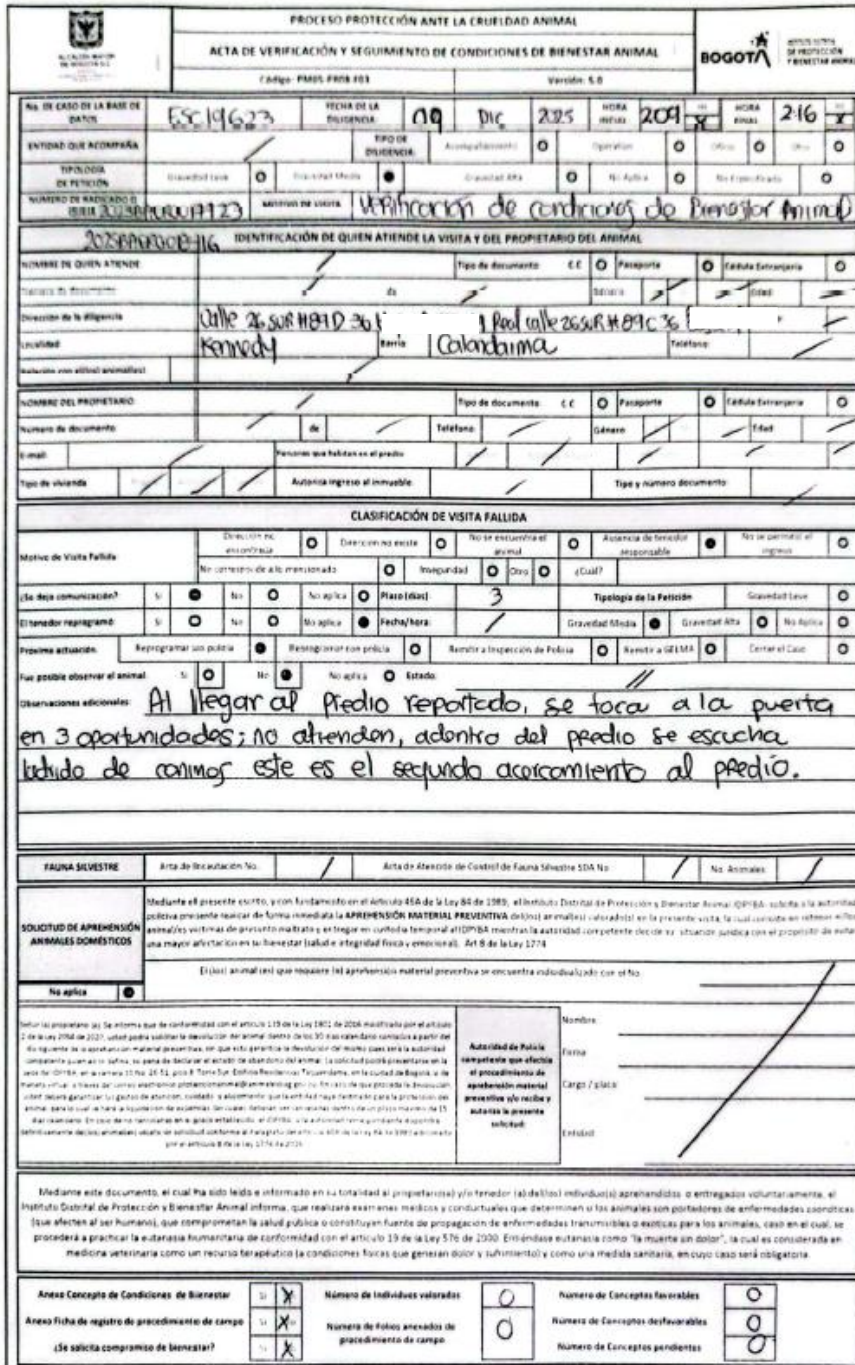 PROCESO PROTECCIÓN ANTE LA CRUELDAD ANIMAL
ACTA DE VERIFICACIÓN Y SEGUIMIENTO DE CONDICIONES DE BIENESTAR ANIMAL
Código: PM05-PR08-F03 Versión: 5.0
ALCALDÍA MAYOR DE BOGOTÁ D.C.
BOGOTÁ INSTITUTO DISTRITAL DE PROTECCIÓN Y BIENESTAR ANIMAL
No. DE CASO DE LA BASE DE DATOS ESC19623 FECHA DE LA DILIGENCIA 09 DIC 2025 HORA INICIAL 209 X HORA FINAL 2:16 X
ENTIDAD QUE ACOMPAÑA / TIPO DE DILIGENCIA Acompañamiento Operativo Oficio Otro
TIPOLOGÍA DE PETICIÓN Gravedad Leve Gravedad Media Gravedad Alta No Aplica No Especificado
NÚMERO DE RADICADO MOTIVO DE VISITA Verificación de condiciones de Bienestar Animal
IDENTIFICACIÓN DE QUIEN ATIENDE LA VISITA Y DEL PROPIETARIO DEL ANIMAL
NOMBRE DE QUIEN ATIENDE / Tipo de documento C.C Pasaporte Cédula Extranjería
Número de documento de Género Edad
Dirección de la diligencia Calle 26 SUR #89D 36 Real calle 26 SUR #89C 36
Localidad Kennedy Barrio Calandaima Teléfono /
Relación con el(los) animal(es)
NOMBRE DEL PROPIETARIO / Tipo de documento C.C Pasaporte Cédula Extranjería
Número de documento / de / Teléfono / Género / Edad /
E-mail / Personas que habitan en el predio /
Tipo de vivienda / Autoriza ingreso al inmueble / Tipo y número documento /
CLASIFICACIÓN DE VISITA FALLIDA
Motivo de Visita Fallida Dirección no encontrada Dirección no existe No se encuentra el animal Ausencia de tenedor responsable No se permitió el ingreso
No corresponde a lo mencionado Inseguridad Otro ¿Cuál?
¿Se deja comunicación? Si No No aplica Plazo (días) 3 Tipología de la Petición Gravedad Leve
El tenedor reprogramó Si No No aplica Fecha/hora / Gravedad Media Gravedad Alta No Aplica
Próxima actuación Reprogramar sin policía Reprogramar con policía Remitir a Inspección de Policía Remitir a GELMA Cerrar el Caso
Fue posible observar el animal Si No No aplica Estado: //
Observaciones adicionales: Al llegar al predio reportado, se toca a la puerta
en 3 oportunidades; no atienden, adentro del predio se escucha
ladrido de caninos este es el segundo acercamiento al predio.
FAUNA SILVESTRE Acta de Incautación No. / Acta de Atención de Control de Fauna Silvestre SDA No / No. Animales /
SOLICITUD DE APREHENSIÓN ANIMALES DOMÉSTICOS
No aplica
Mediante el presente escrito, y con fundamento en el Artículo 46A de la Ley 84 de 1989, el Instituto Distrital de Protección y Bienestar Animal IDPYBA solicita a la autoridad
policiva presente realizar de forma inmediata la APREHENSIÓN MATERIAL PREVENTIVA del(los) animal(es) valorado(s) en la presente visita, la cual consiste en retener el/los
animal/es víctimas de presunto maltrato y entregar en custodia temporal al IDPYBA mientras la autoridad competente decide su situación jurídica con el propósito de evitar
una mayor afectación en su bienestar (salud e integridad física y emocional). Art 8 de la Ley 1774
El (los) animal (es) que requiere (n) aprehensión material preventiva se encuentra individualizado con el No.
Autoridad de Policía competente que efectúa el procedimiento de aprehensión material preventiva y/o recibe y autoriza la presente solicitud:
Nombre:
Firma
Cargo / placa:
Entidad:
Mediante este documento, el cual ha sido leído e informado en su totalidad al propietario(a) y/o tenedor (a) del(los) individuo(s) aprehendidos o entregados voluntariamente, el
Instituto Distrital de Protección y Bienestar Animal informa, que realizará exámenes médicos y conductuales que determinen si los animales son portadores de enfermedades zoonóticas
(que afecten al ser humano), que comprometan la salud pública o constituyen fuente de propagación de enfermedades transmisibles o exóticas para los animales, caso en el cual, se
procederá a practicar la eutanasia humanitaria de conformidad con el artículo 19 de la Ley 576 de 2000. Entiéndase eutanasia como "la muerte sin dolor", la cual es considerada en
medicina veterinaria como un recurso terapéutico (a condiciones físicas que generan dolor y sufrimiento) y como una medida sanitaria, en cuyo caso será obligatoria.
Anexo Concepto de Condiciones de Bienestar Si X Número de Individuos valorados 0 Número de Conceptos favorables 0
Anexo Ficha de registro de procedimiento de campo Si X Número de Folios anexados de procedimiento de campo 0 Número de Conceptos desfavorables 0
¿Se solicita compromiso de bienestar? Si X Número de Conceptos pendientes 0